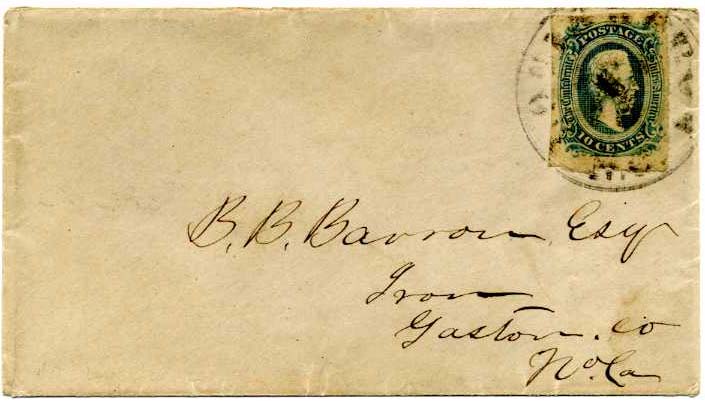 POSTAGE
The Confederate States of America
10 CENTS
B. B. Barron Esq
Iron
Gaston. co
No. Ca